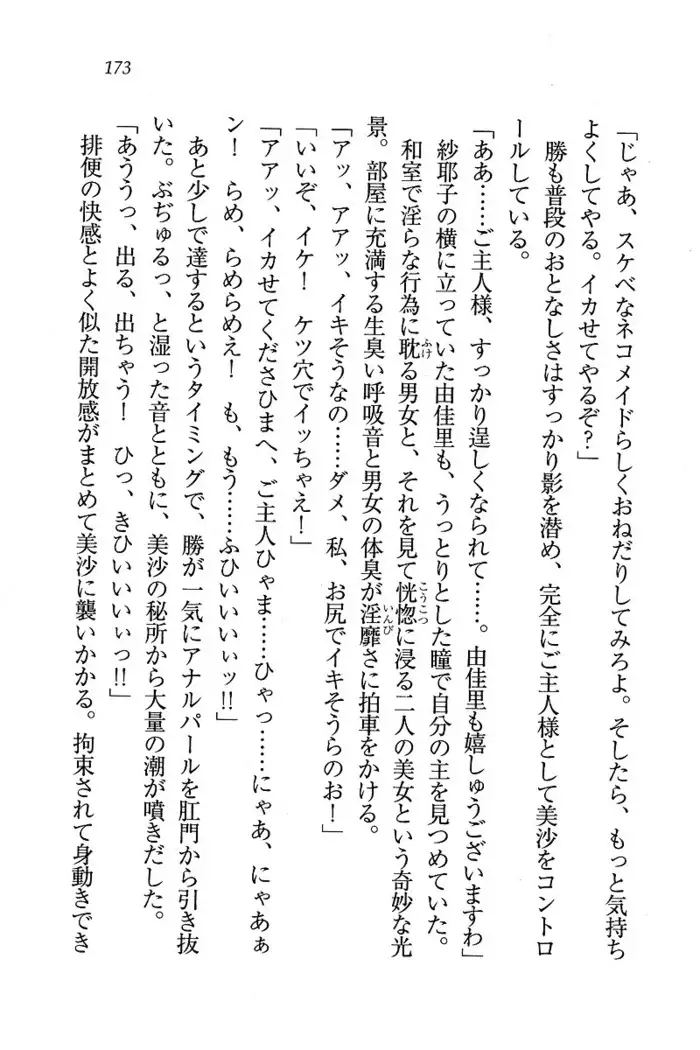 173
「じゃあ、スケベなネコメイドらしくおねだりしてみろよ。そしたら、もっと気持ち
よくしてやる。イカせてやるぞ？」
勝も普段のおとなしさはすっかり影を潜め、完全にご主人様として美沙をコントロ
ールしている。
「ああ……ご主人様、すっかり逞しくなられて……。由佳里も嬉しゅうございますわ」
紗耶子の横に立っていた由佳里も、うっとりとした瞳で自分の主を見つめていた。
和室で淫らな行為に耽る男女と、それを見て恍惚に浸る二人の美女という奇妙な光
景。部屋に充満する生臭い呼吸音と男女の体臭が淫靡さに拍車をかける。
「アッ、アアッ、イキそうなの……ダメ、私、お尻でイキそうらのお！」
「いいぞ、イケ！　ケツ穴でイッちゃえ！」
「アアッ、イカせてくださひまへ、ご主人ひゃま……ひゃっ……にゃあ、にゃあぁ
ン！　らめ、らめらめえ！　も、もう……ふひいいいぃッ!!」
あと少しで達するというタイミングで、勝が一気にアナルパールを肛門から引き抜
いた。ぶぢゅるっ、と湿った音とともに、美沙の秘所から大量の潮が噴きだした。
「あううっ、出る、出ちゃう！　ひっ、きひいいいぃっ!!」
排便の快感とよく似た開放感がまとめて美沙に襲いかかる。拘束されて身動きでき